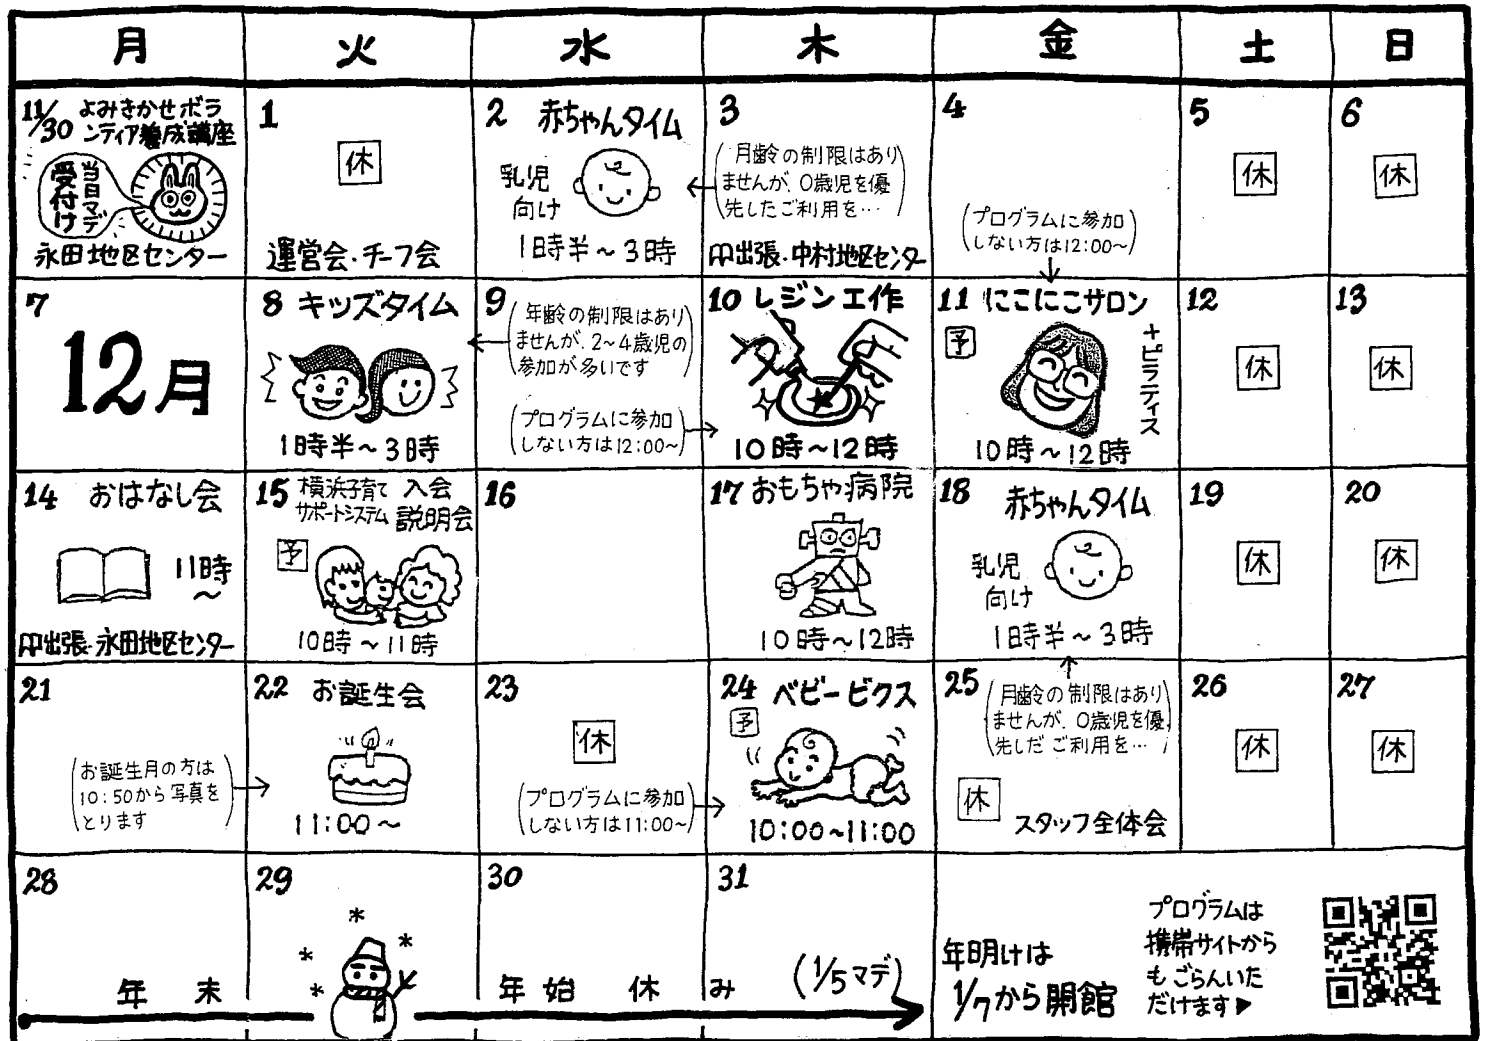 月 火 水 木 金 土 日
11/30 よみきかせボラ
ンティア養成講座
当日マデ
受付け
永田地区センター
1
休
運営会・チーフ会
2 赤ちゃんタイム
乳児
向け
1時半～3時
3
(月齢の制限はあり
ませんが、0歳児を優
先したご利用を…)
出張・中村地区センター
4
(プログラムに参加
しない方は12:00～)
5
休
6
休
7
12月
8 キッズタイム
1時半～3時
9
(年齢の制限はあり
ませんが、2～4歳児の
参加が多いです)
(プログラムに参加
しない方は12:00～)
10 レジン工作
10時～12時
11 にこにこサロン
予
+ピラティス
10時～12時
12
休
13
休
14 おはなし会
11時
～
出張・永田地区センター
15 横浜子育て 入会
サポートシステム 説明会
予
10時～11時
16
17 おもちゃ病院
10時～12時
18 赤ちゃんタイム
乳児
向け
1時半～3時
19
休
20
休
21
(お誕生月の方は
10:50から写真を
とります)
22 お誕生会
11:00～
23
休
(プログラムに参加
しない方は11:00～)
24 ベビービクス
予
10:00～11:00
25
(月齢の制限はあり
ませんが、0歳児を優
先しだご利用を…)
休
スタッフ全体会
26
休
27
休
28 29 30 31
年末 年始 休み (1/5マデ)
年明けは
1/7から開館
プログラムは
携帯サイトから
もごらんいた
だけます▶